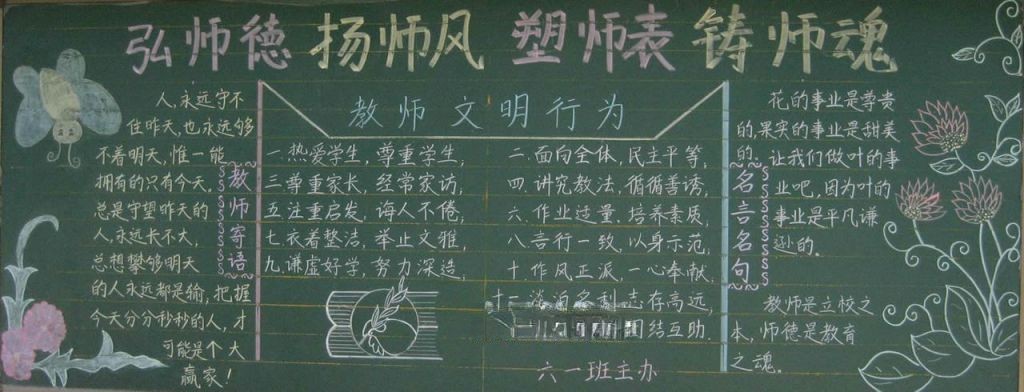 弘师德 扬师风 塑师表 铸师魂
人,永远守不
住昨天,也永远够
不着明天,惟一能
拥有的只有今天。
总是守望昨天的
人,永远长不大,
总想攀够明天
的人永远都是输,把握
今天分分秒秒的人,才
可能是个大
赢家!
教师寄语
教师文明行为
一.热爱学生,尊重学生,
二.面向全体,民主平等,
三.尊重家长,经常家访,
四.讲究教法,循循善诱,
五.注重启发,诲人不倦,
六.作业适量,培养素质,
七.衣着整洁,举止文雅,
八.言行一致,以身示范,
九.谦虚好学,努力深造,
十.作风正派,一心奉献,
十一.泊名利,志存高远,
团结互助.
六一班主办
名言名句
花,的事业是尊贵
的,果实的事业是甜美
的,让我们做叶的事
业吧,因为叶的
事业是平凡谦
逊的。
教师是立校之
本,师德是教育
之魂。